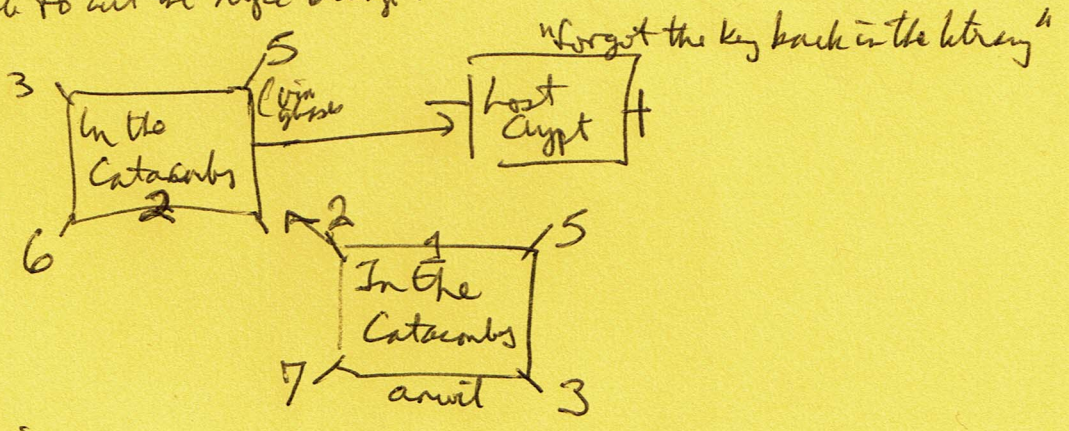 "forgot the key back in the library"
3
5
In the
Catacombs
2
6
Lost
Crypt
2
1
5
In the
Catacombs
7
anvil
3